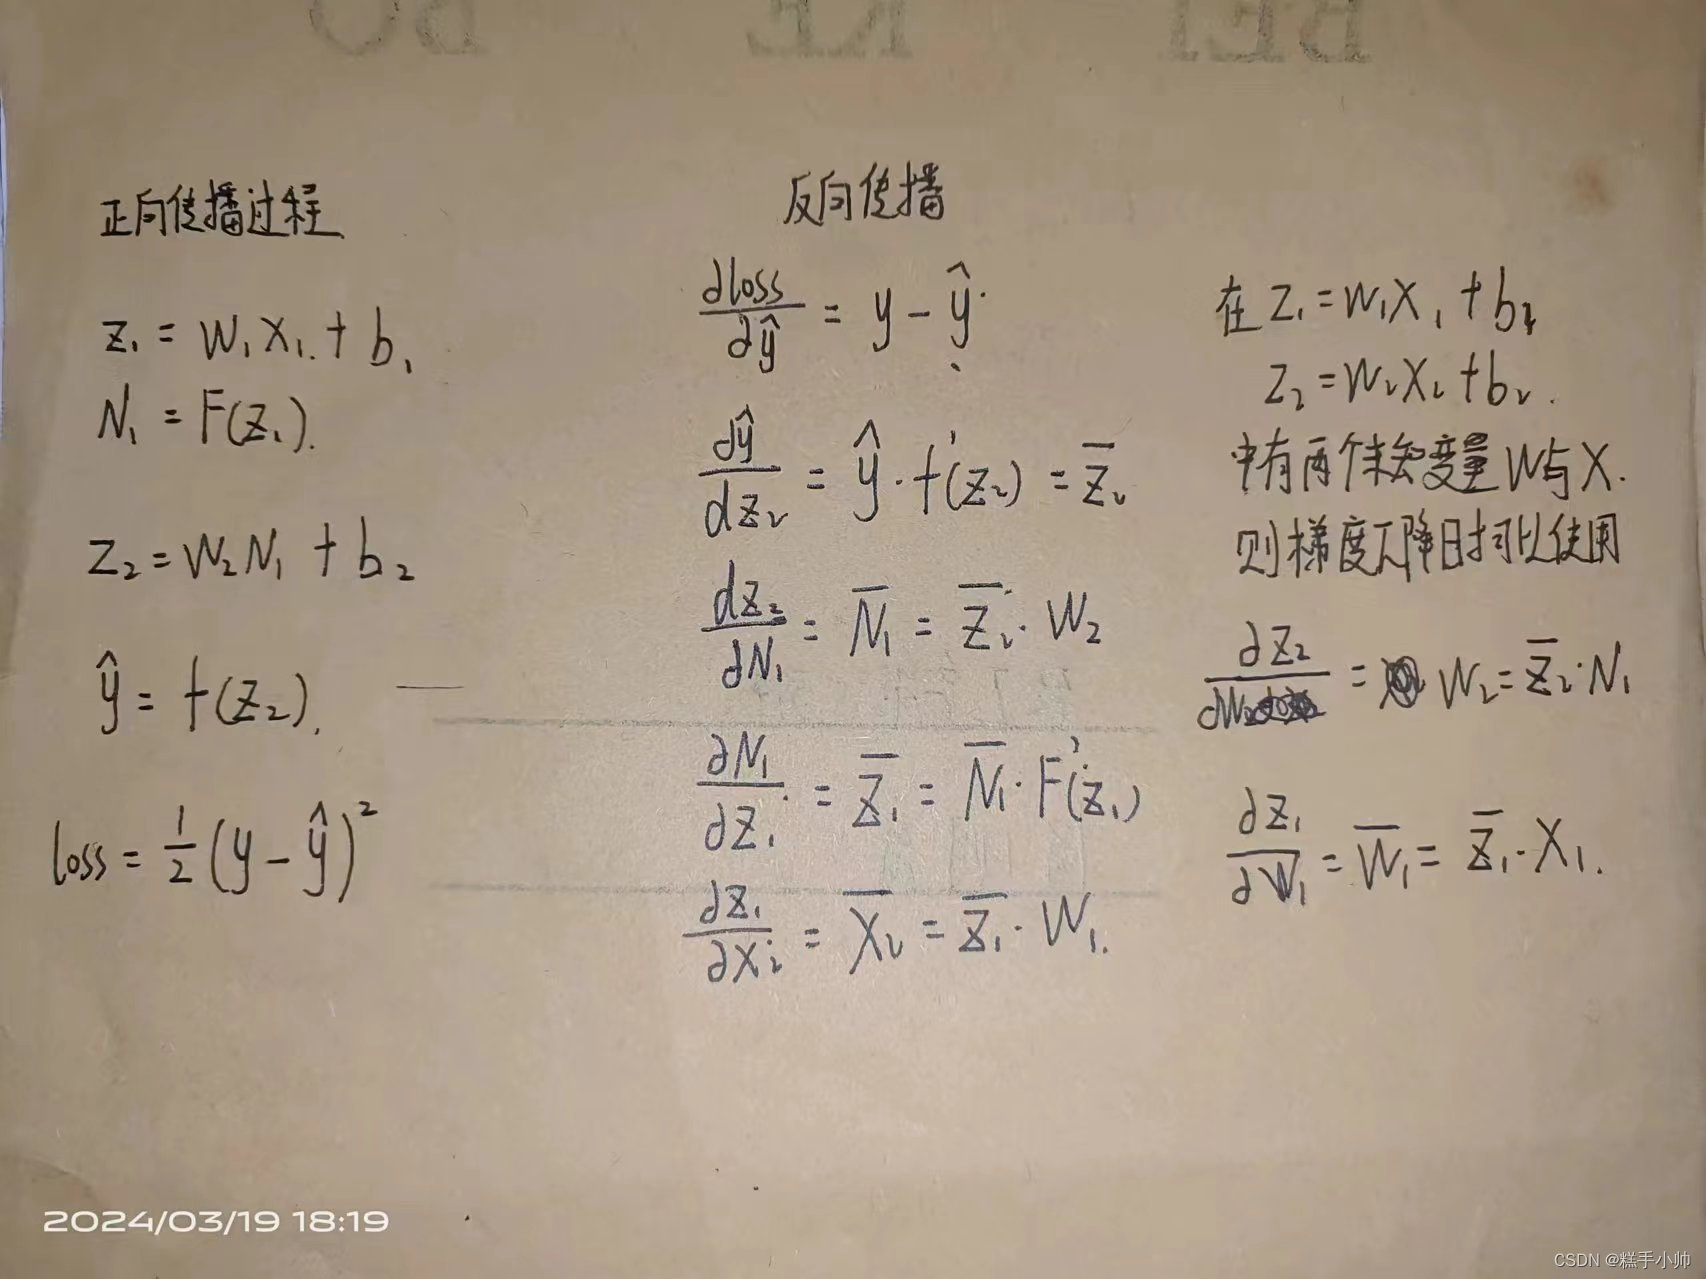 正向传播过程
z₁ = W₁X₁ + b₁
N₁ = F(z₁).
z₂ = W₂N₁ + b₂
ŷ = f(z₂).
loss = 1/2 (y - ŷ)²
反向传播
∂loss/∂ŷ = y - ŷ
dŷ/dz₂ = ŷ · f'(z₂) = z̄₂
dz₂/dN₁ = N̄₁ = z̄₂ · W₂
∂N₁/∂z₁ = z̄₁ = N̄₁ · F'(z₁)
∂z₁/∂X₂ = X̄₂ = z̄₁ · W₁.
在 z₁ = W₁X₁ + b₁
z₂ = W₂X₂ + b₂.
中有两个未知变量W与X.
则梯度下降时可以使用
∂z₂/∂W₂ = W₂ = z̄₂ · N₁
∂z₁/∂W₁ = W̄₁ = z̄₁ · X₁.
2024/03/19 18:19
CSDN @糕手小帅